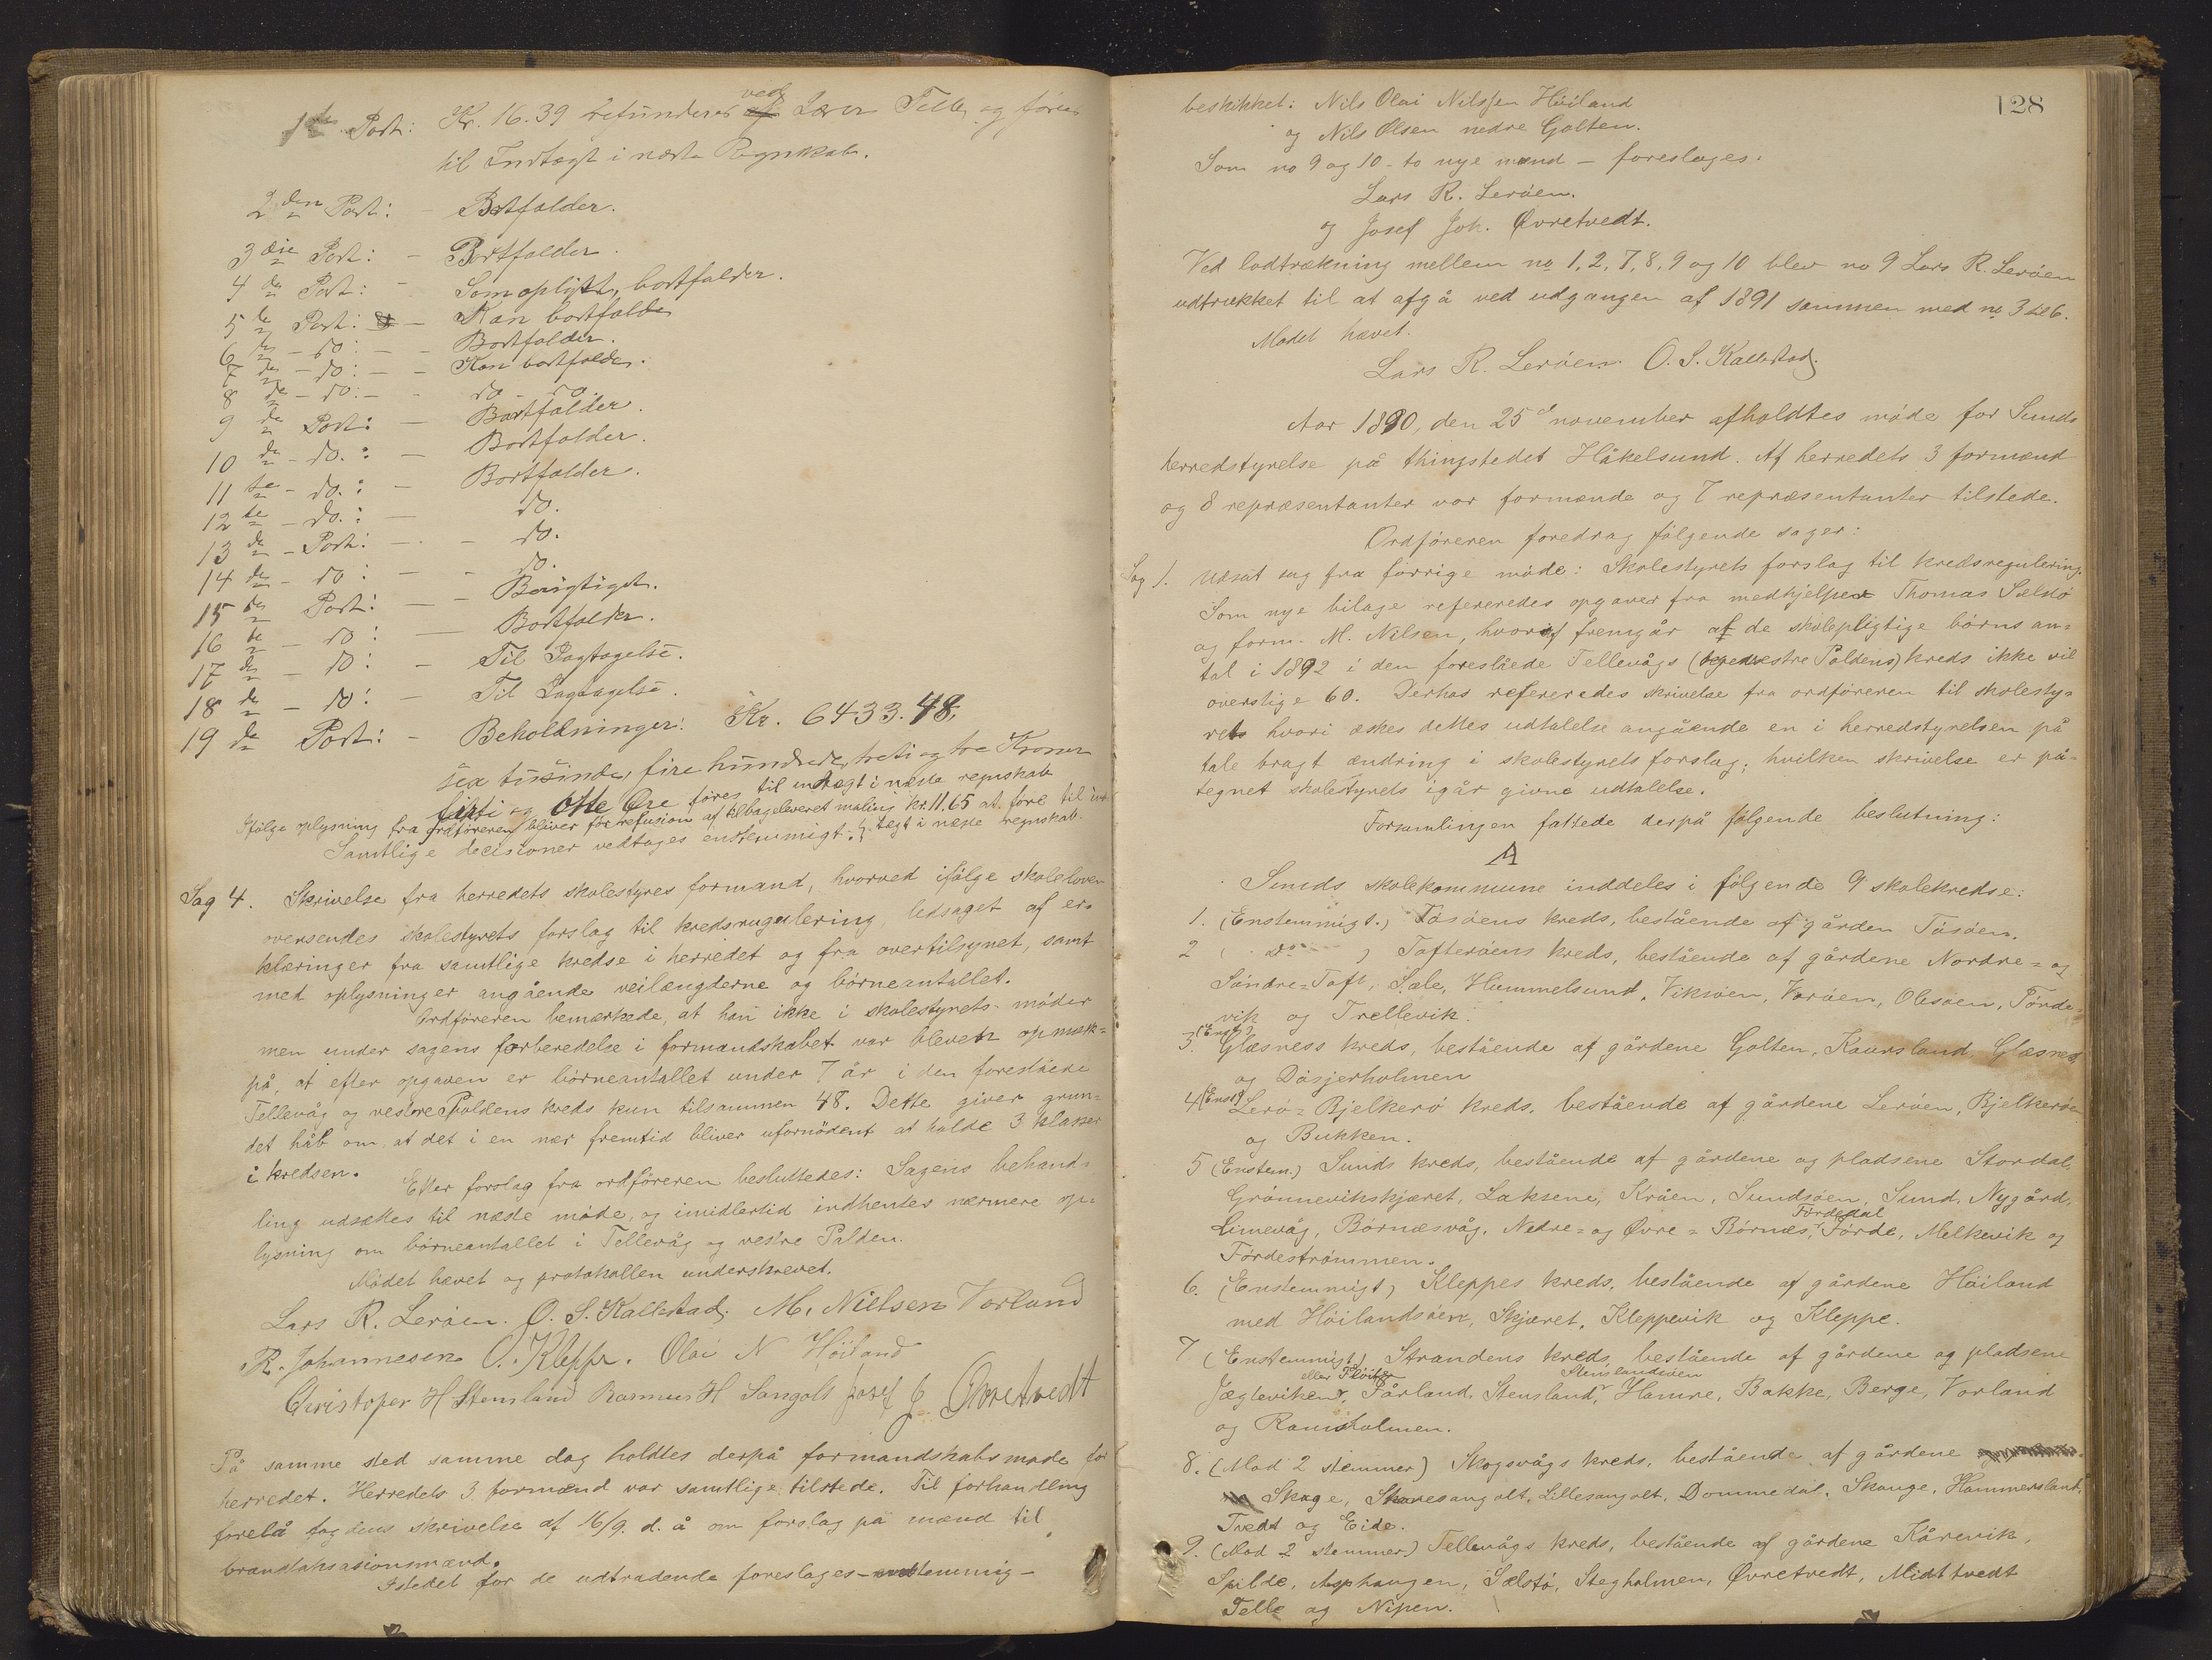 1ste Post: Kr. 16.39 refunderes ved Lærer Telle, og føres
til Indtægt i næste Regnskab.
2den Post: - Bortfalder.
3die Post: - Bortfalder.
4de Post: - Som oplyst, bortfalder.
5te Post: - Kan bortfalde
6te - do: - - Bortfalder.
7de - do: - - Kan bortfalde.
8de - do: - - do - do.
9de Post: - Bortfalder.
10de - do.: - Bortfalder.
11te - do.: - Bortfalder.
12te - do.: - do.
13de - Post: - - do.
14de - do: - - do.
15de Post: - - Berigtiget.
16te - do: - Bortfalder.
17de - do: - Til Iagtagelse.
18de - do: - Til Iagtagelse.
19de Post: - Beholdninger: Kr. 6433.48.
sex tusinde, fire hundrede, treti og tre Kroner
firti og otte Øre føres til indtægt i næste regnskab
Ifølge oplysning fra ordføreren bliver for refusion af tilbageleveret maling kr. 11.65 at føre til ind-
Samtlige decisioner vedtages enstemmigt. tegt i næste regnskab.
Sag 4. Skrivelse fra herredets skolestyres formand, hvorved ifølge skoleloven
oversendes skolestyrets forslag til kredsregulering, ledsaget af er-
klæringer fra samtlige kredse i herredet og fra overtilsynet, samt
med oplysninger angående veilængderne og børneantallet.
Ordføreren bemærkede, at han ikke i skolestyrets møder
men under sagens forberedelse i formandskabet var bleven opmærk=
på, at efter opgaven er børneantallet under 7 år i den foreslåede
Tellevåg og vestre Poldens kreds kun tilsammen 48. Dette giver grun-
det håb om, at det i en nær fremtid bliver ufornødent at holde 3 klasser
i kredsen.
Efter forslag fra ordføreren besluttedes: Sagens behand-
ling udsættes til næste møde, og imidlertid indhentes nærmere op-
lysning om børneantallet i Tellevåg og vestre Palden.
Mødet hævet og protokollen underskrevet.
Lars R. Lerøen. O. S. Kallestad. M. Nielsen Vorland
R. Johannesen O. Kleppe. Olai N Høiland
Christoper H Stensland Rasmus H Sangolt Josef J. Øvretvedt
På samme sted samme dag holdtes derpå formandskabsmøde for
herredet. Herredets 3 formænd var samtlige tilstede. Til forhandling
forelå fogdens skrivelse af 16/9 d. å om forslag på mænd til
brandtaksasionsmænd.
Istedet for de udtrædende foreslages - enstemmig -
128
beskikket: Nils Olai Nilssen Høiland
og Nils Olsen nedre Golten.
Som no 9 og 10 - to nye mænd - foreslages:
Lars R. Lerøen.
og Josef Joh. Øvretvedt.
Ved lodtrækning mellem no 1, 2, 7, 8, 9 og 10 blev no 9 Lars R. Lerøen
udtrukket til at afgå ved udgangen af 1891 sammen med no 3 til 6.
Mødet hævet.
Lars R. Lerøen O. S. Kallestad.
Aar 1890, den 25de november afholdtes møde for Sunds
herredstyrelse på thingstedet Håkelsund. Af herredets 3 formænd
og 8 repræsentanter var formænde og 7 repræsentanter tilstede.
Ordføreren foredrag følgende sager:
Sag 1. Udsat sag fra forrige møde: Skolestyrets forslag til kredsregulering.
Som nye bilage refereredes opgaver fra medhjelper Thomas Selstø
og form. M. Nilsen, hvoraf fremgår at de skolepligtige børns an=
tal i 1892 i den foreslåede Tellevågs (vestre Poldens) kreds ikke vil
overstige 60. Derhos refereredes skrivelse fra ordføreren til skolesty=
rets hvori æskes dettes udtalelse angående en i herredstyrelsen på
tale bragt ændring i skolestyrets forslag, hvilken skrivelse er på-
tegnet skolestyrets igår givne udtalelse.
Forsamlingen fattede derpå følgende beslutning:
A
Sunds skolekommune inddeles i følgende 9 skolekredse:
1. (Enstemmigt.) Tøsøens kreds, bestående af gården Tøsøen.
2 ( do ) Tofterøens kreds, bestående af gårdene Nordre= og
Søndre=Toft, Sæle, Hummelsund, Viksøen, Vorøen, Olesøen, Tørde=
vik og Trellevik.
3. (Enst.) Glæsness kreds, bestående af gårdene Golten, Kaursland, Glæsnes,
og Døsjerholmen
4 (Enst) Lerø=Bjelkerø kreds, bestående af gårdene Lerøen, Bjelkerøen
og Bukken.
5 (Enstem.) Sunds kreds, bestående af gårdene og pladsene Stordal,
Grønnevikskjæret, Laksene, Kråen, Sundsøen, Sund, Nygård,
Limevåg, Børnæsvåg, Nedre= og Øvre= Børnæs, Førdedal Førde, Melkevik og
Førdestrømmen.
6. (Enstemmigt) Kleppes kreds, bestående af gårdene Høiland
med Høilandsøen, Skjæret, Kleppevik og Kleppe.
7 (Enstemmigt) Strandens kreds, bestående af gårdene og pladsene
Jægleviken eller Fløiten, Førland, Stensland, Stenslandsøen Hamre, Bakke, Berge, Vorland
og Ramsholmen.
8. (Mod 2 stemmer) Skogsvågs kreds, bestående af gårdene
Skoge, Storesangolt, Lillesangolt, Dommedal, Skauge, Hammersland,
Tvedt og Eide.
9. (Mod 2 stemmer) Tellevågs kreds, bestående af gårdene Kårevik,
Spilde, Asphaugen, Selstø, Stegholmen, Øvretvedt, Midttvedt
Telle og Nipen.